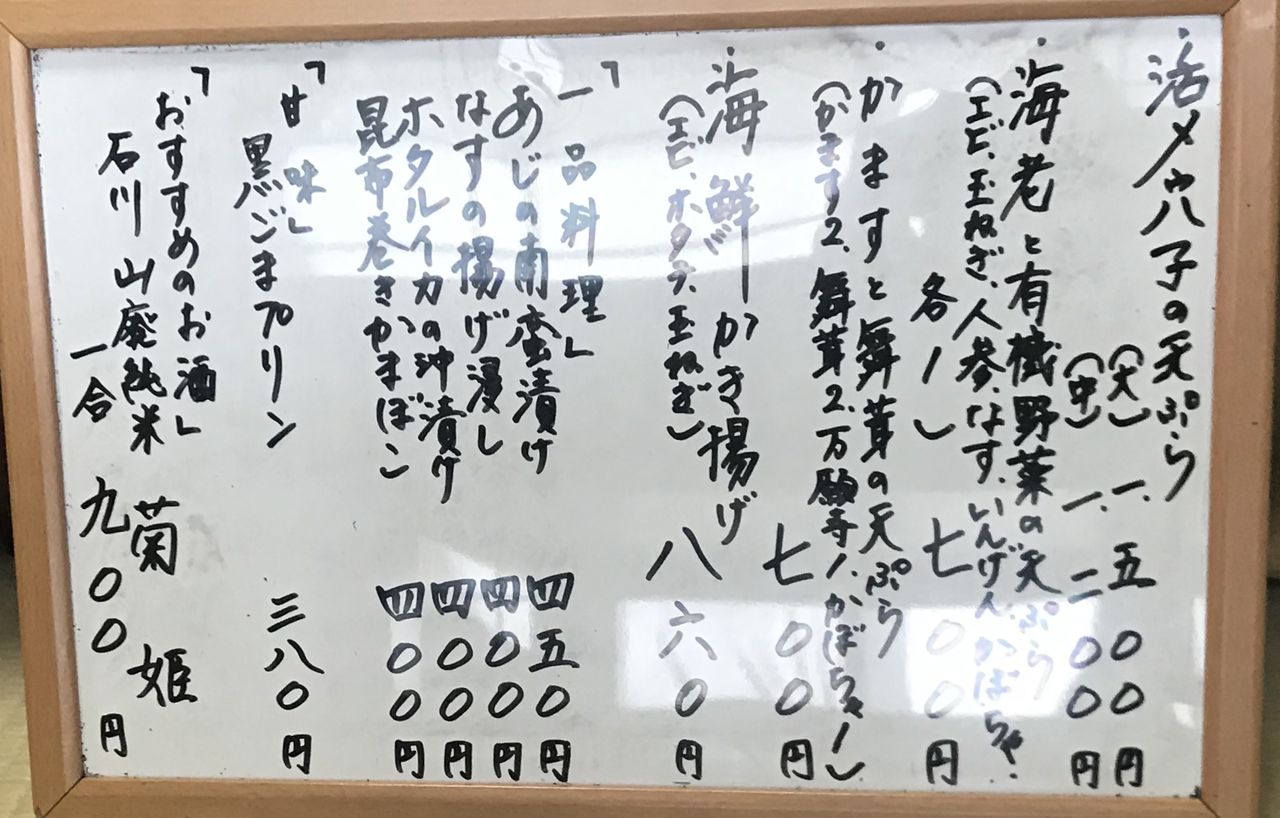 ・活〆穴子の天ぷら
(大) 一、五〇〇円
(中) 一、二〇〇円
・海老と有機野菜の天ぷら
(エビ、玉ねぎ、人参、なす、いんげん、かぼちゃ、
各1) 七〇〇円
・かますと舞茸の天ぷら
(かます2、舞茸2、万願寺1、かぼちゃ1)
七〇〇円
・海鮮かき揚げ
(エビ、ホタテ、玉ねぎ) 八六〇円
「一品料理」
あじの南蛮漬け 四五〇円
なすの揚げ浸し 四〇〇円
ホタルイカの沖漬け 四〇〇円
昆布巻きかまぼこ 四〇〇円
「甘味」
黒ごまプリン 三八〇円
「おすすめのお酒」
石川 山廃純米 菊姫
一合 九〇〇円